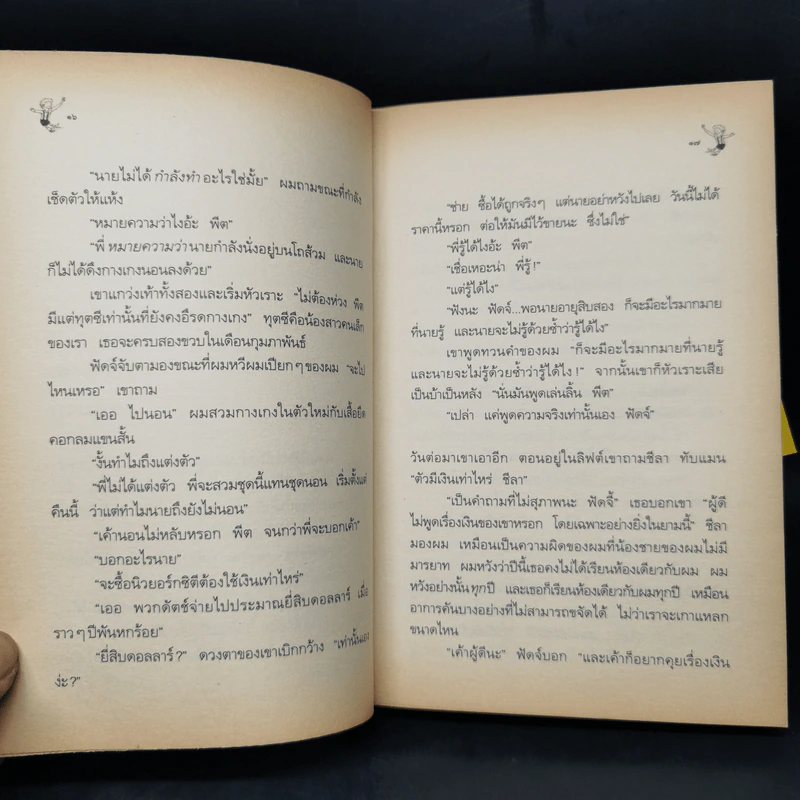 ๑๖
“นายไม่ได้ กำลังทำ อะไรใช่มั้ย” ผมถามขณะที่กำลัง
เช็ดตัวให้แห้ง
“หมายความว่าไงอ้ะ พีต”
“พี่ หมายความว่า นายกำลังนั่งอยู่บนโถส้วม และนาย
ก็ไม่ได้ดึงกางเกงนอนลงด้วย”
เขาแกว่งเท้าทั้งสองและเริ่มหัวเราะ “ไม่ต้องห่วง พีต
มีแต่ทุตซีเท่านั้นที่ยังคงอึรดกางเกง” ทุตซีคือน้องสาวคนเล็ก
ของเรา เธอจะครบสองขวบในเดือนกุมภาพันธ์
ฟัดจ์จับตามองขณะที่ผมหวีผมเปียกๆ ของผม “จะไป
ไหนเหรอ” เขาถาม
“เออ ไปนอน” ผมสวมกางเกงในตัวใหม่กับเสื้อยืด
คอกลมแขนสั้น
“งั้นทำไมถึงแต่งตัว”
“พี่ไม่ได้แต่งตัว พี่จะสวมชุดนี้แทนชุดนอน เริ่มตั้งแต่
คืนนี้ ว่าแต่ทำไมนายถึงยังไม่นอน”
“เค้านอนไม่หลับหรอก พีต จนกว่าพี่จะบอกเค้า”
“บอกอะไรนาย”
“จะซื้อนิวยอร์กซิตีต้องใช้เงินเท่าไหร่”
“เออ พวกดัตช์จ่ายไปประมาณยี่สิบดอลลาร์ เมื่อ
ราวๆ ปีพันหกร้อย”
“ยี่สิบดอลลาร์?” ดวงตาของเขาเบิกกว้าง “เท่านั้นเอง
ง่ะ?”
๑๗
“ช่าย ซื้อได้ถูกจริงๆ แต่นายอย่าหวังไปเลย วันนี้ไม่ได้
ราคานี้หรอก ต่อให้มันมีไว้ขายนะ ซึ่งไม่ใช่”
“พี่รู้ได้ไงอ้ะ พีต”
“เชื่อเหอะน่า พี่รู้!”
“แต่รู้ได้ไง”
“ฟังนะ ฟัดจ์...พอนายอายุสิบสอง ก็จะมีอะไรมากมาย
ที่นายรู้ และนายจะไม่รู้ด้วยซ้ำว่ารู้ได้ไง”
เขาพูดทวนคำของผม “ก็จะมีอะไรมากมายที่นายรู้
และนายจะไม่รู้ด้วยซ้ำว่ารู้ได้ไง!” จากนั้นเขาก็หัวเราะเสีย
เป็นบ้าเป็นหลัง “นั่นมันพูดเล่นลิ้น พีต”
“เปล่า แค่พูดความจริงเท่านั้นเอง ฟัดจ์”
วันต่อมาเขาเอาอีก ตอนอยู่ในลิฟต์เขาถามชีลา ทับแมน
“ตัวมีเงินเท่าไหร่ ชีลา”
“เป็นคำถามที่ไม่สุภาพนะ ฟัดจี้” เธอบอกเขา “ผู้ดี
ไม่พูดเรื่องเงินของเขาหรอก โดยเฉพาะอย่างยิ่งในยามนี้” ชีลา
มองผม เหมือนเป็นความผิดของผมที่น้องชายของผมไม่มี
มารยาท ผมหวังว่าปีนี้เธอคงไม่ได้เรียนห้องเดียวกับผม ผม
หวังอย่างนั้นทุกปี และเธอก็เรียนห้องเดียวกับผมทุกปี เหมือน
อาการคันบางอย่างที่ไม่สามารถขจัดได้ ไม่ว่าเราจะเกาแหลก
ขนาดไหน
“เค้าผู้ดีนะ” ฟัดจ์บอก “และเค้าก็อยากคุยเรื่องเงิน